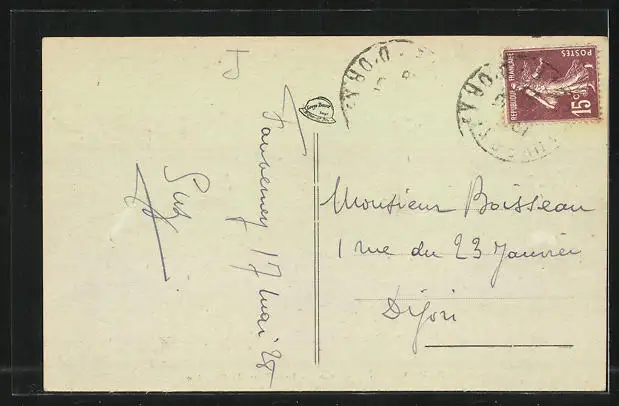 Fauverney 17 mai 28
Monsieur Boisseau
1 rue du 23 Janvier
Dijon
REPUBLIQUE FRANÇAISE
POSTES
15c